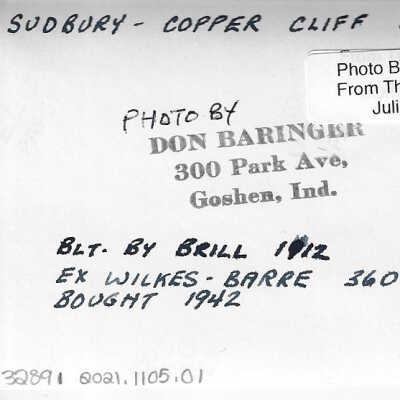 SUDBURY - COPPER CLIFF
Photo B
From Th
Juli
PHOTO BY
DON BARINGER
300 Park Ave,
Goshen, Ind.
BLT. BY BRILL 1912
EX WILKES-BARRE 360
BOUGHT 1942
32891 2021.1105.01